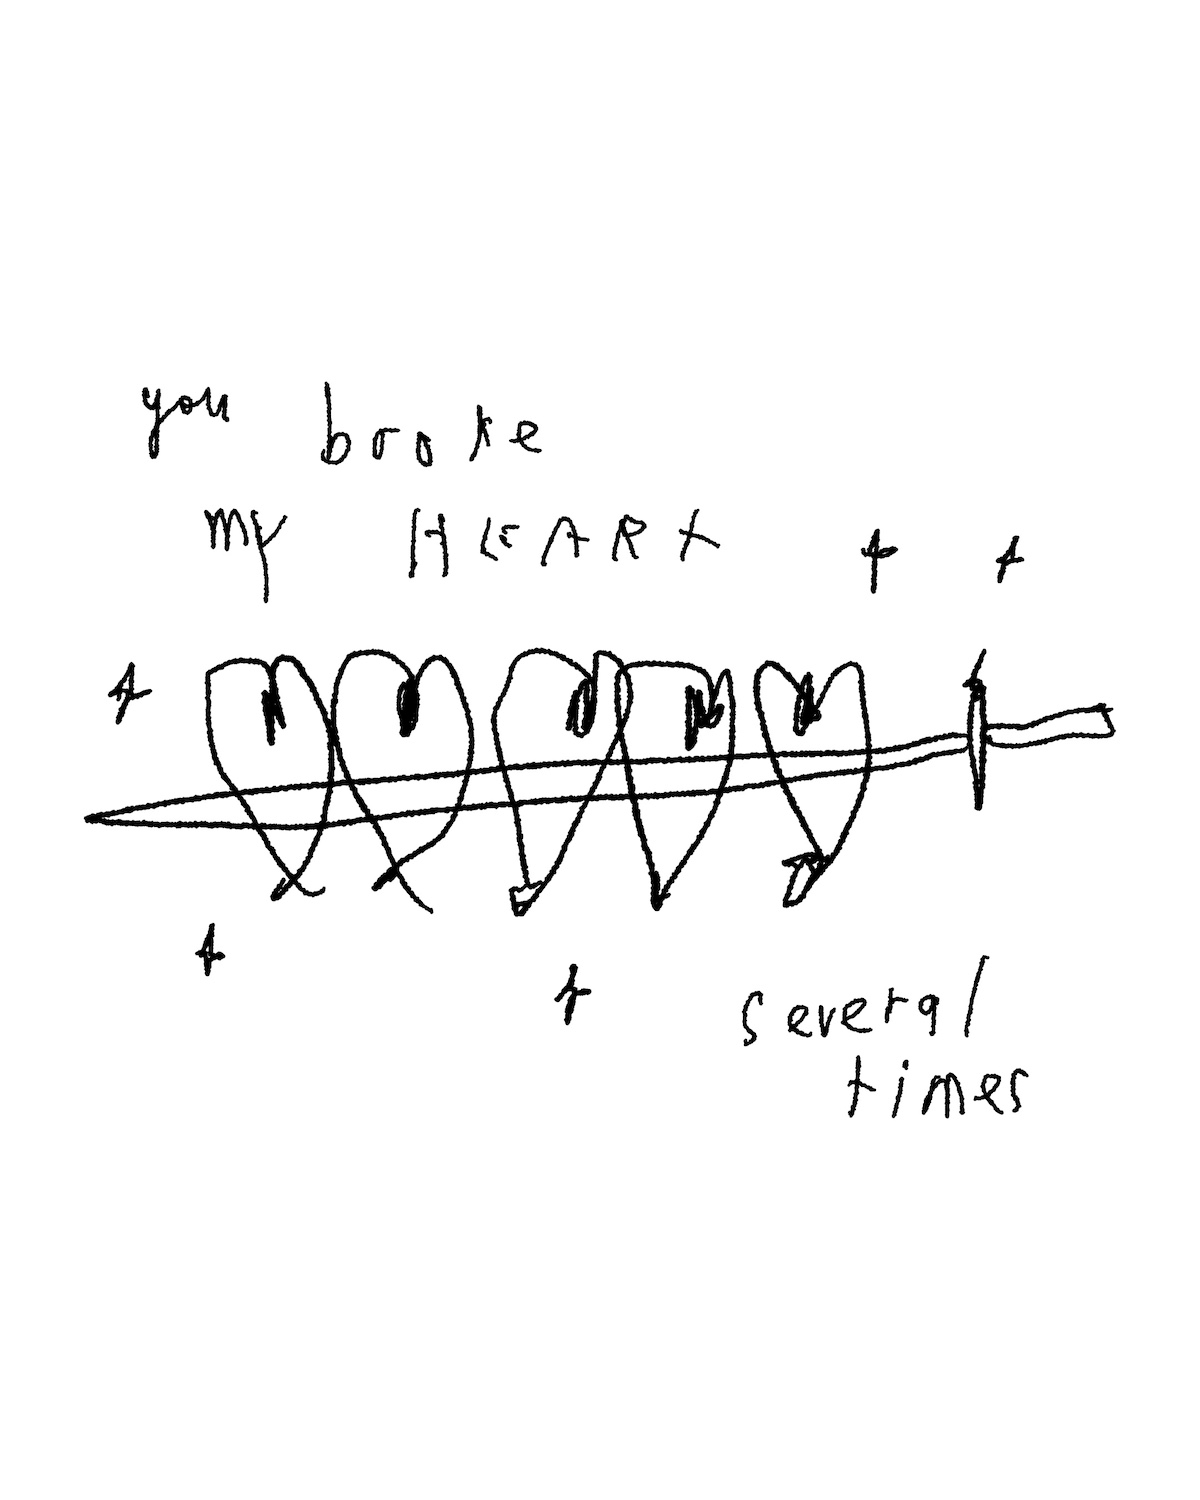 you broke
my HEART
several
times